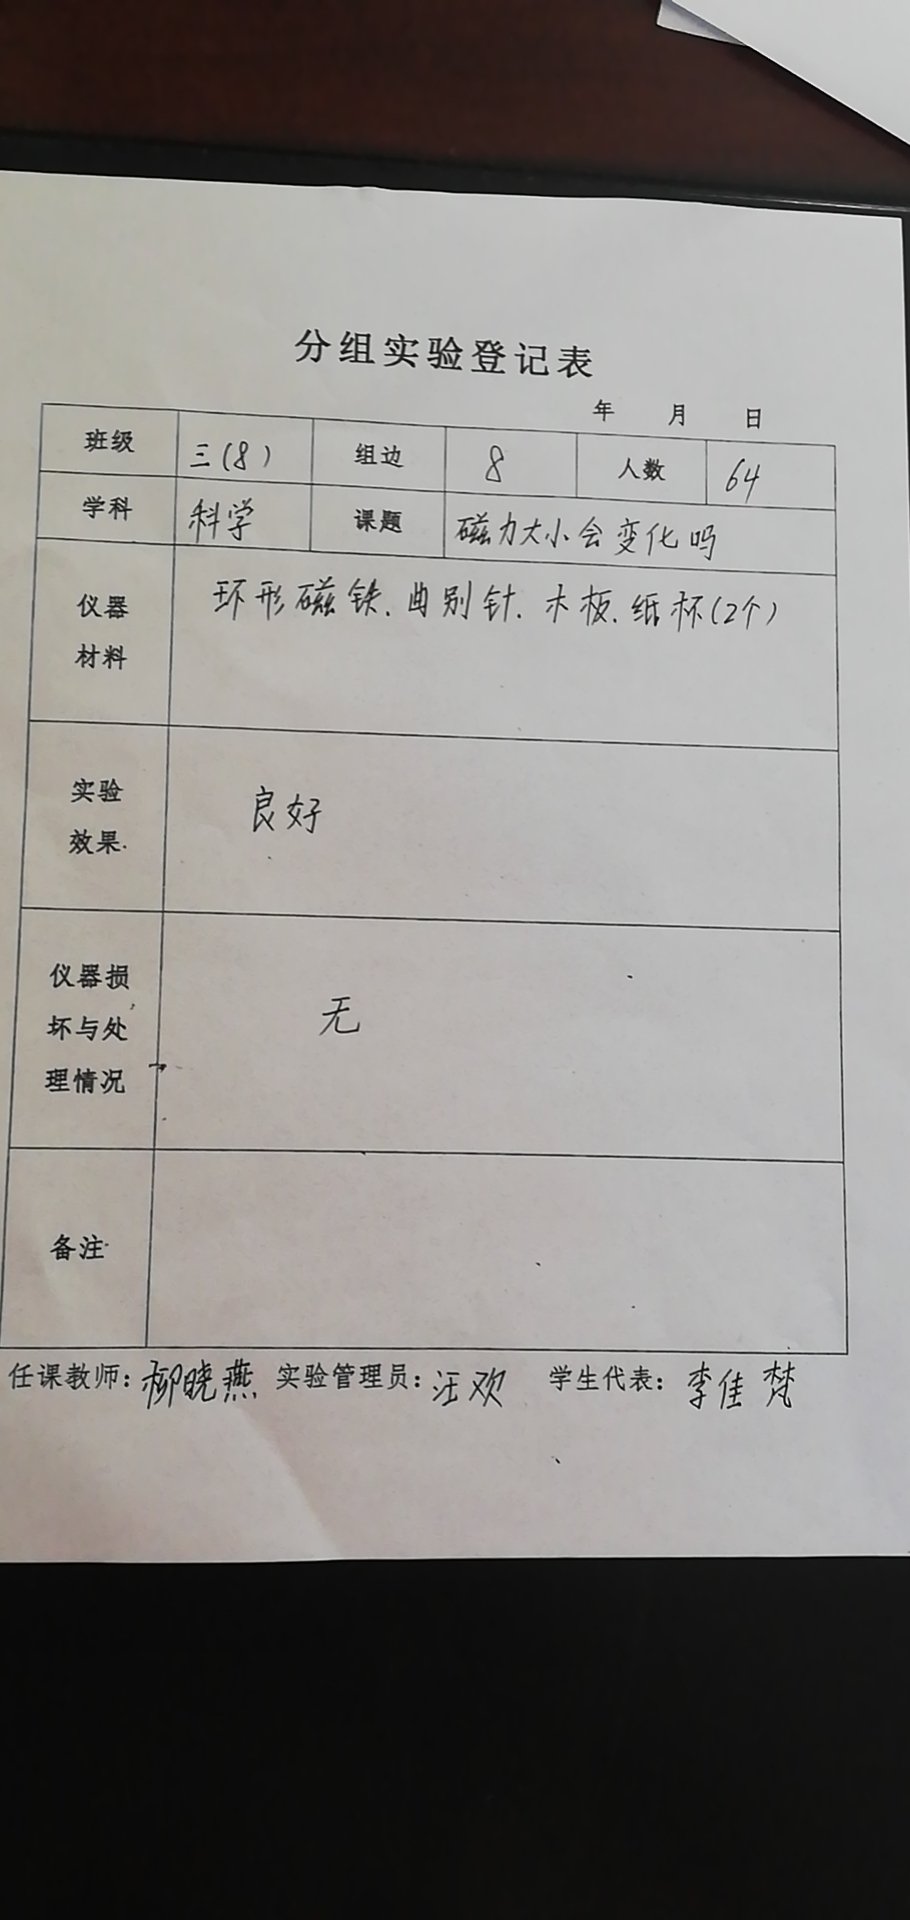 分组实验登记表
年 月 日
班级 三(8) 组边 8 人数 64
学科 科学 课题 磁力大小会变化吗
仪器 环形磁铁、曲别针、木板、纸杯(2个)
材料
实验 良好
效果
仪器损
坏与处 无
理情况
备注
任课教师:柳晓燕 实验管理员:汪欢 学生代表:李佳梵